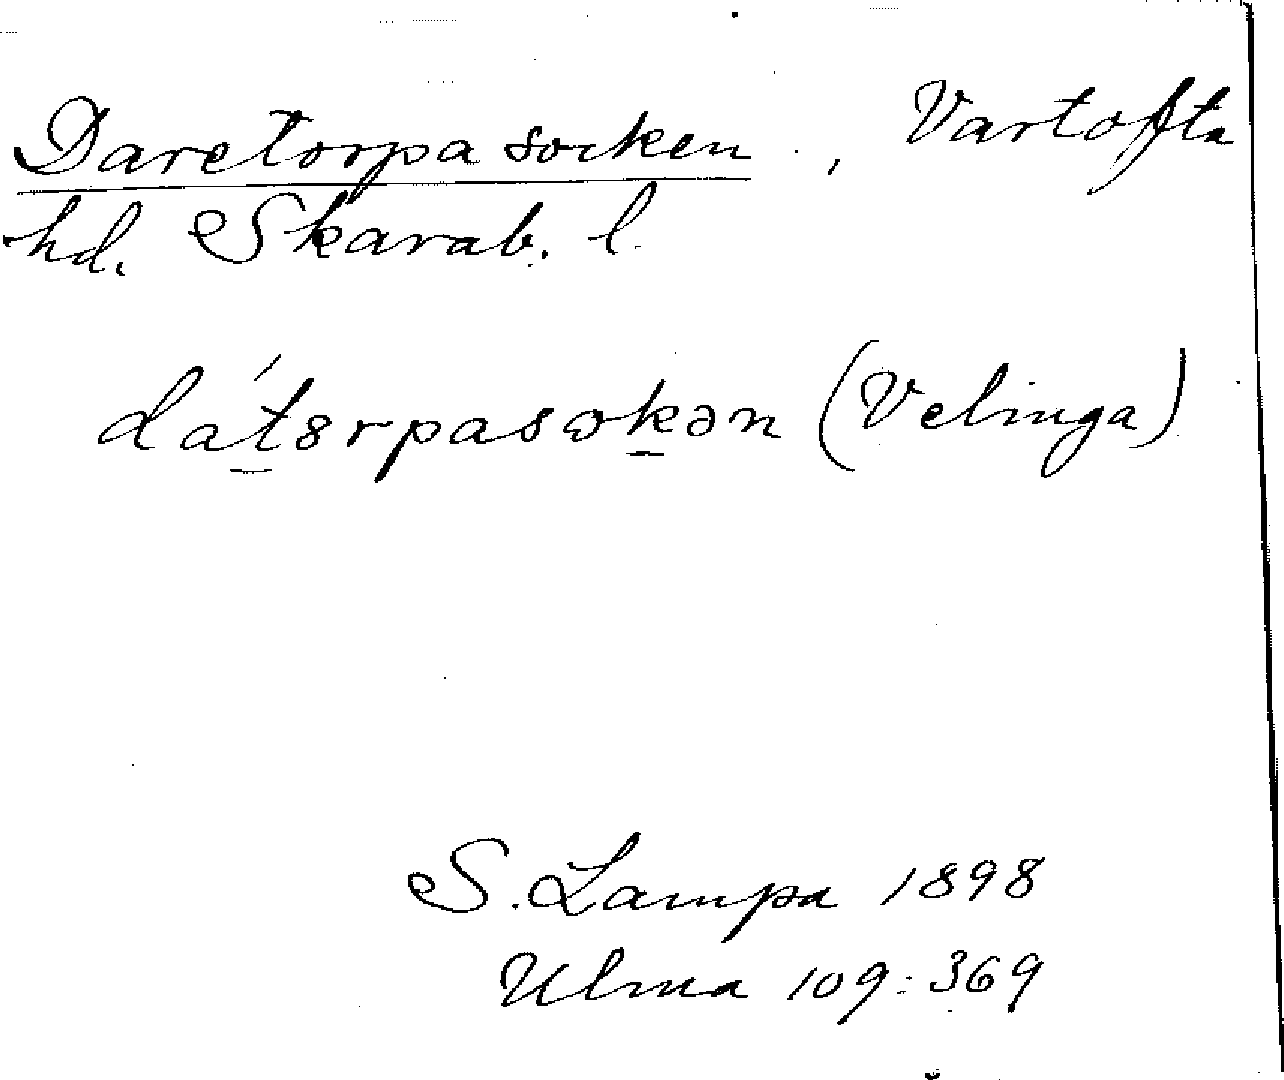 Daretorpa socken, Vartofta
hd. Skarab. l.
dát8rpasωkən (Velinga)
S. Lampa 1898
Ulma 109:369